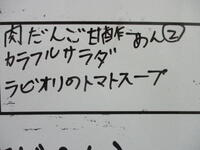 肉だんご甘酢あん②
カラフルサラダ
ラビオリのトマトスープ